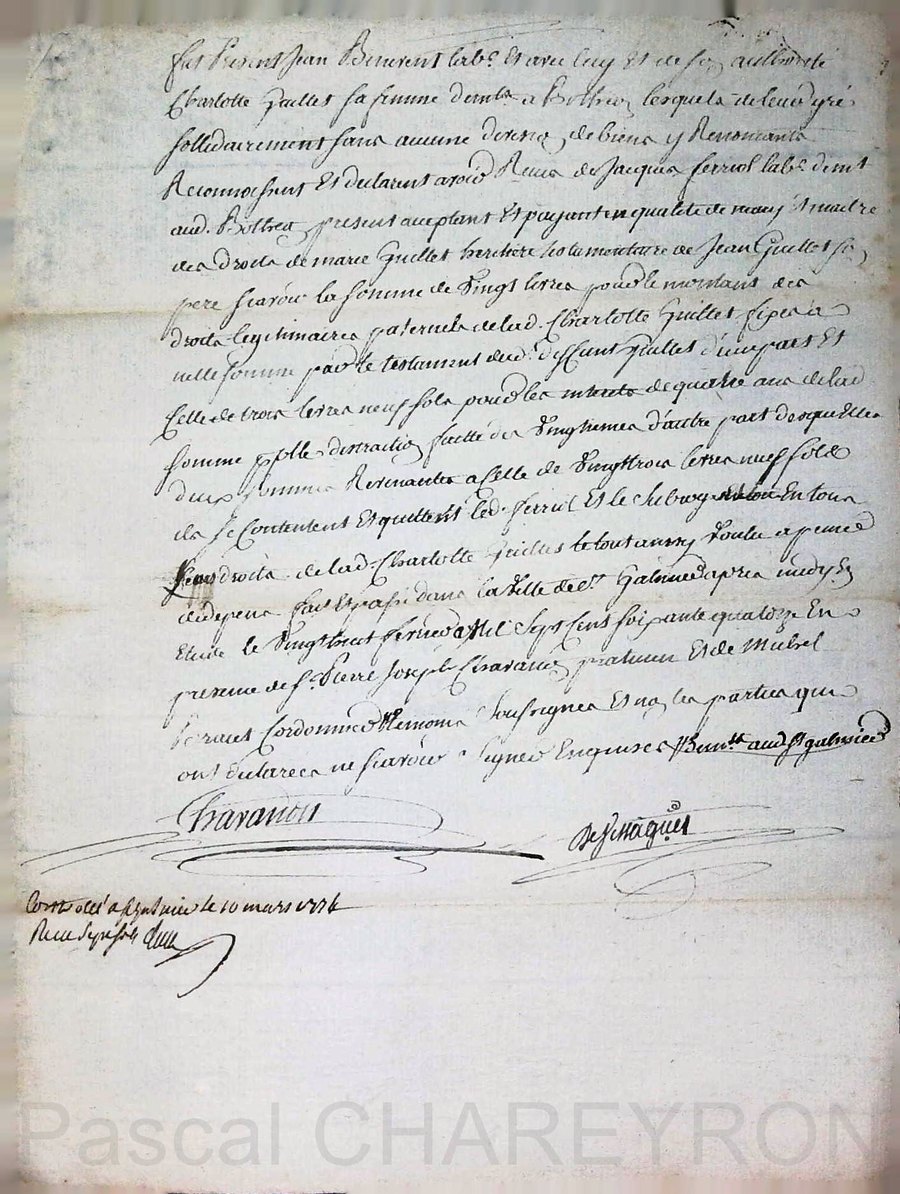 fut Present Jean Benevent lab.r Et avec luy Et de son authorité
Charlotte Guillet sa femme dem.ts a Bothéon lesquels de leurs gré
sollidairement sans aucune division de biens y Renonçants
Reconnoissent Et declarent avoir Receu de Jacques ferriol lab.r dem.t
aud. Bothéon present acceptant Et payant en qualité de mary Et maitre
des droits de marie Guillet heritière de Jean Guillet son
pere sçavoir la somme de Vingt livres pour le montant des
droits legitimaires paternels de lad. Charlotte Guillet fixés a
celle somme par le testament dud. deffunt Guillet d'une part Et
Celle de trois livres neuf sols pour les interets de quatre ans de lad.
somme distraction faitte des Vingtiemes d'autre part desquelles
deux sommes Revenantes a Celle de Vingt trois livres neuf sols
ils se Contentent Et quittent led. ferriol Et le Subrogent En tous
les droits de lad. Charlotte Guillet le tout aussy Voulu a peine
de depens fait Et passé dans la Ville de S.t Galmier apres midy En
Etude le Vingt huit fevrier Mil Sept Cens Soixante quatorze En
presence de S.r Pierre Joseph Chavanon praticien Et de Michel
Cordonnier temoins Soussignés Et non les parties qui
ont declarées ne sçavoir Signer Enquises aud. S.t galmier
Chavanon
Contrôllé a S.t galmier le 10 mars 1774
Receu Sept sols
Pascal CHAREYRON